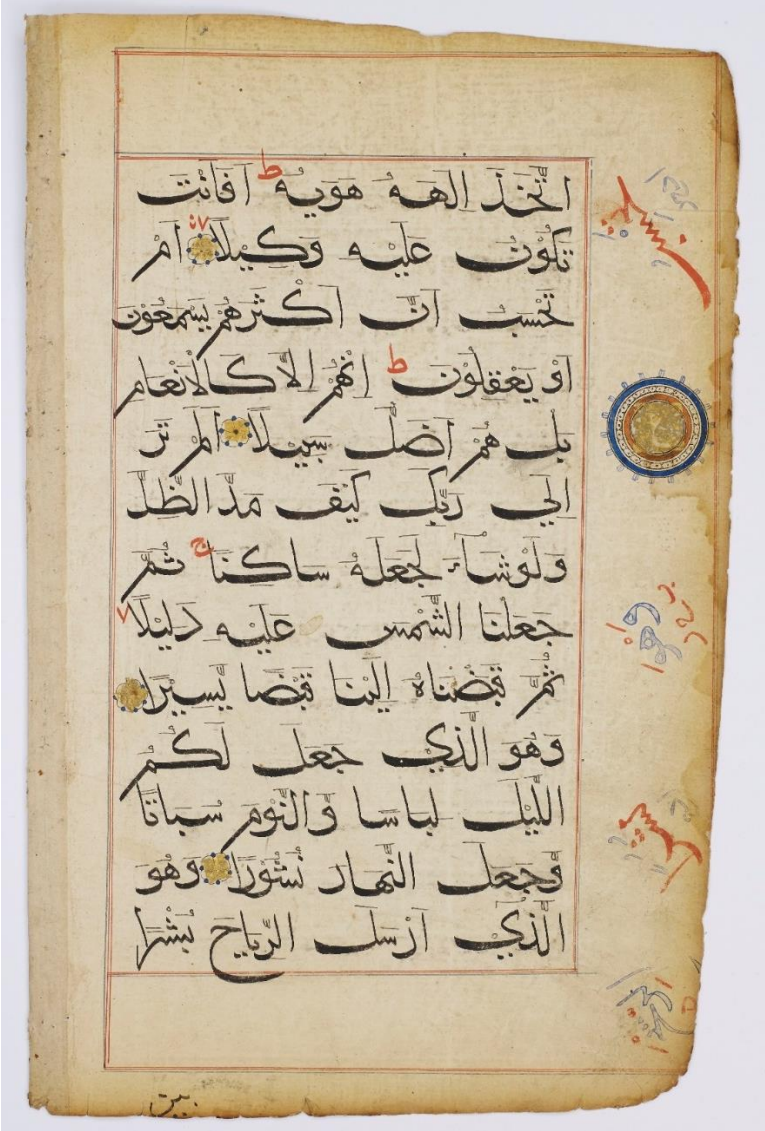 اتَّخَذَ إِلٰهَهُ هَوٰيهُ ط أَفَأَنْتَ
تَكُونُ عَلَيْهِ وَكِيلًا أَمْ
تَحْسَبُ أَنَّ أَكْثَرَهُمْ يَسْمَعُونَ
أَوْ يَعْقِلُونَ ط إِنْ هُمْ إِلَّا كَالْأَنْعَامِ
بَلْ هُمْ أَضَلُّ سَبِيلًا أَلَمْ تَرَ
إِلَى رَبِّكَ كَيْفَ مَدَّ الظِّلَّ
وَلَوْ شَاءَ لَجَعَلَهُ سَاكِنًا ج ثُمَّ
جَعَلْنَا الشَّمْسَ عَلَيْهِ دَلِيلًا
ثُمَّ قَبَضْنَاهُ إِلَيْنَا قَبْضًا يَسِيرًا
وَهُوَ الَّذِي جَعَلَ لَكُمُ
اللَّيْلَ لِبَاسًا وَالنَّوْمَ سُبَاتًا
وَجَعَلَ النَّهَارَ نُشُورًا وَهُوَ
الَّذِي أَرْسَلَ الرِّيَاحَ بُشْرًا